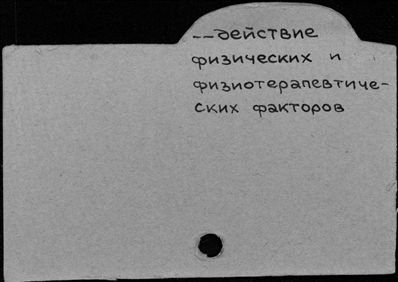 --действие
физических и
физиотерапевтиче-
ских факторов